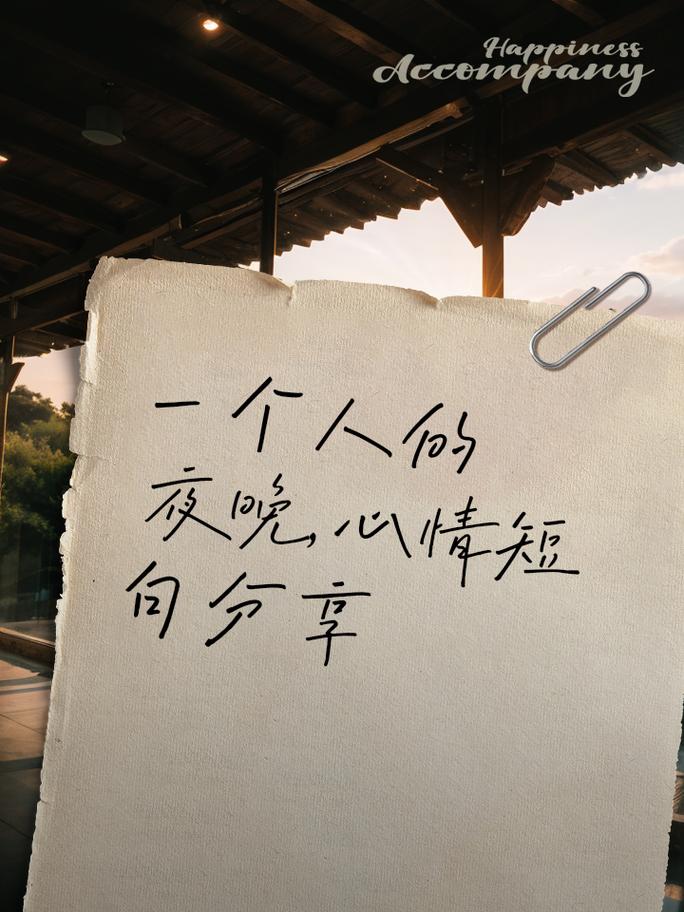 Happiness
Accompany
一个人的
夜晚,心情短
句分享